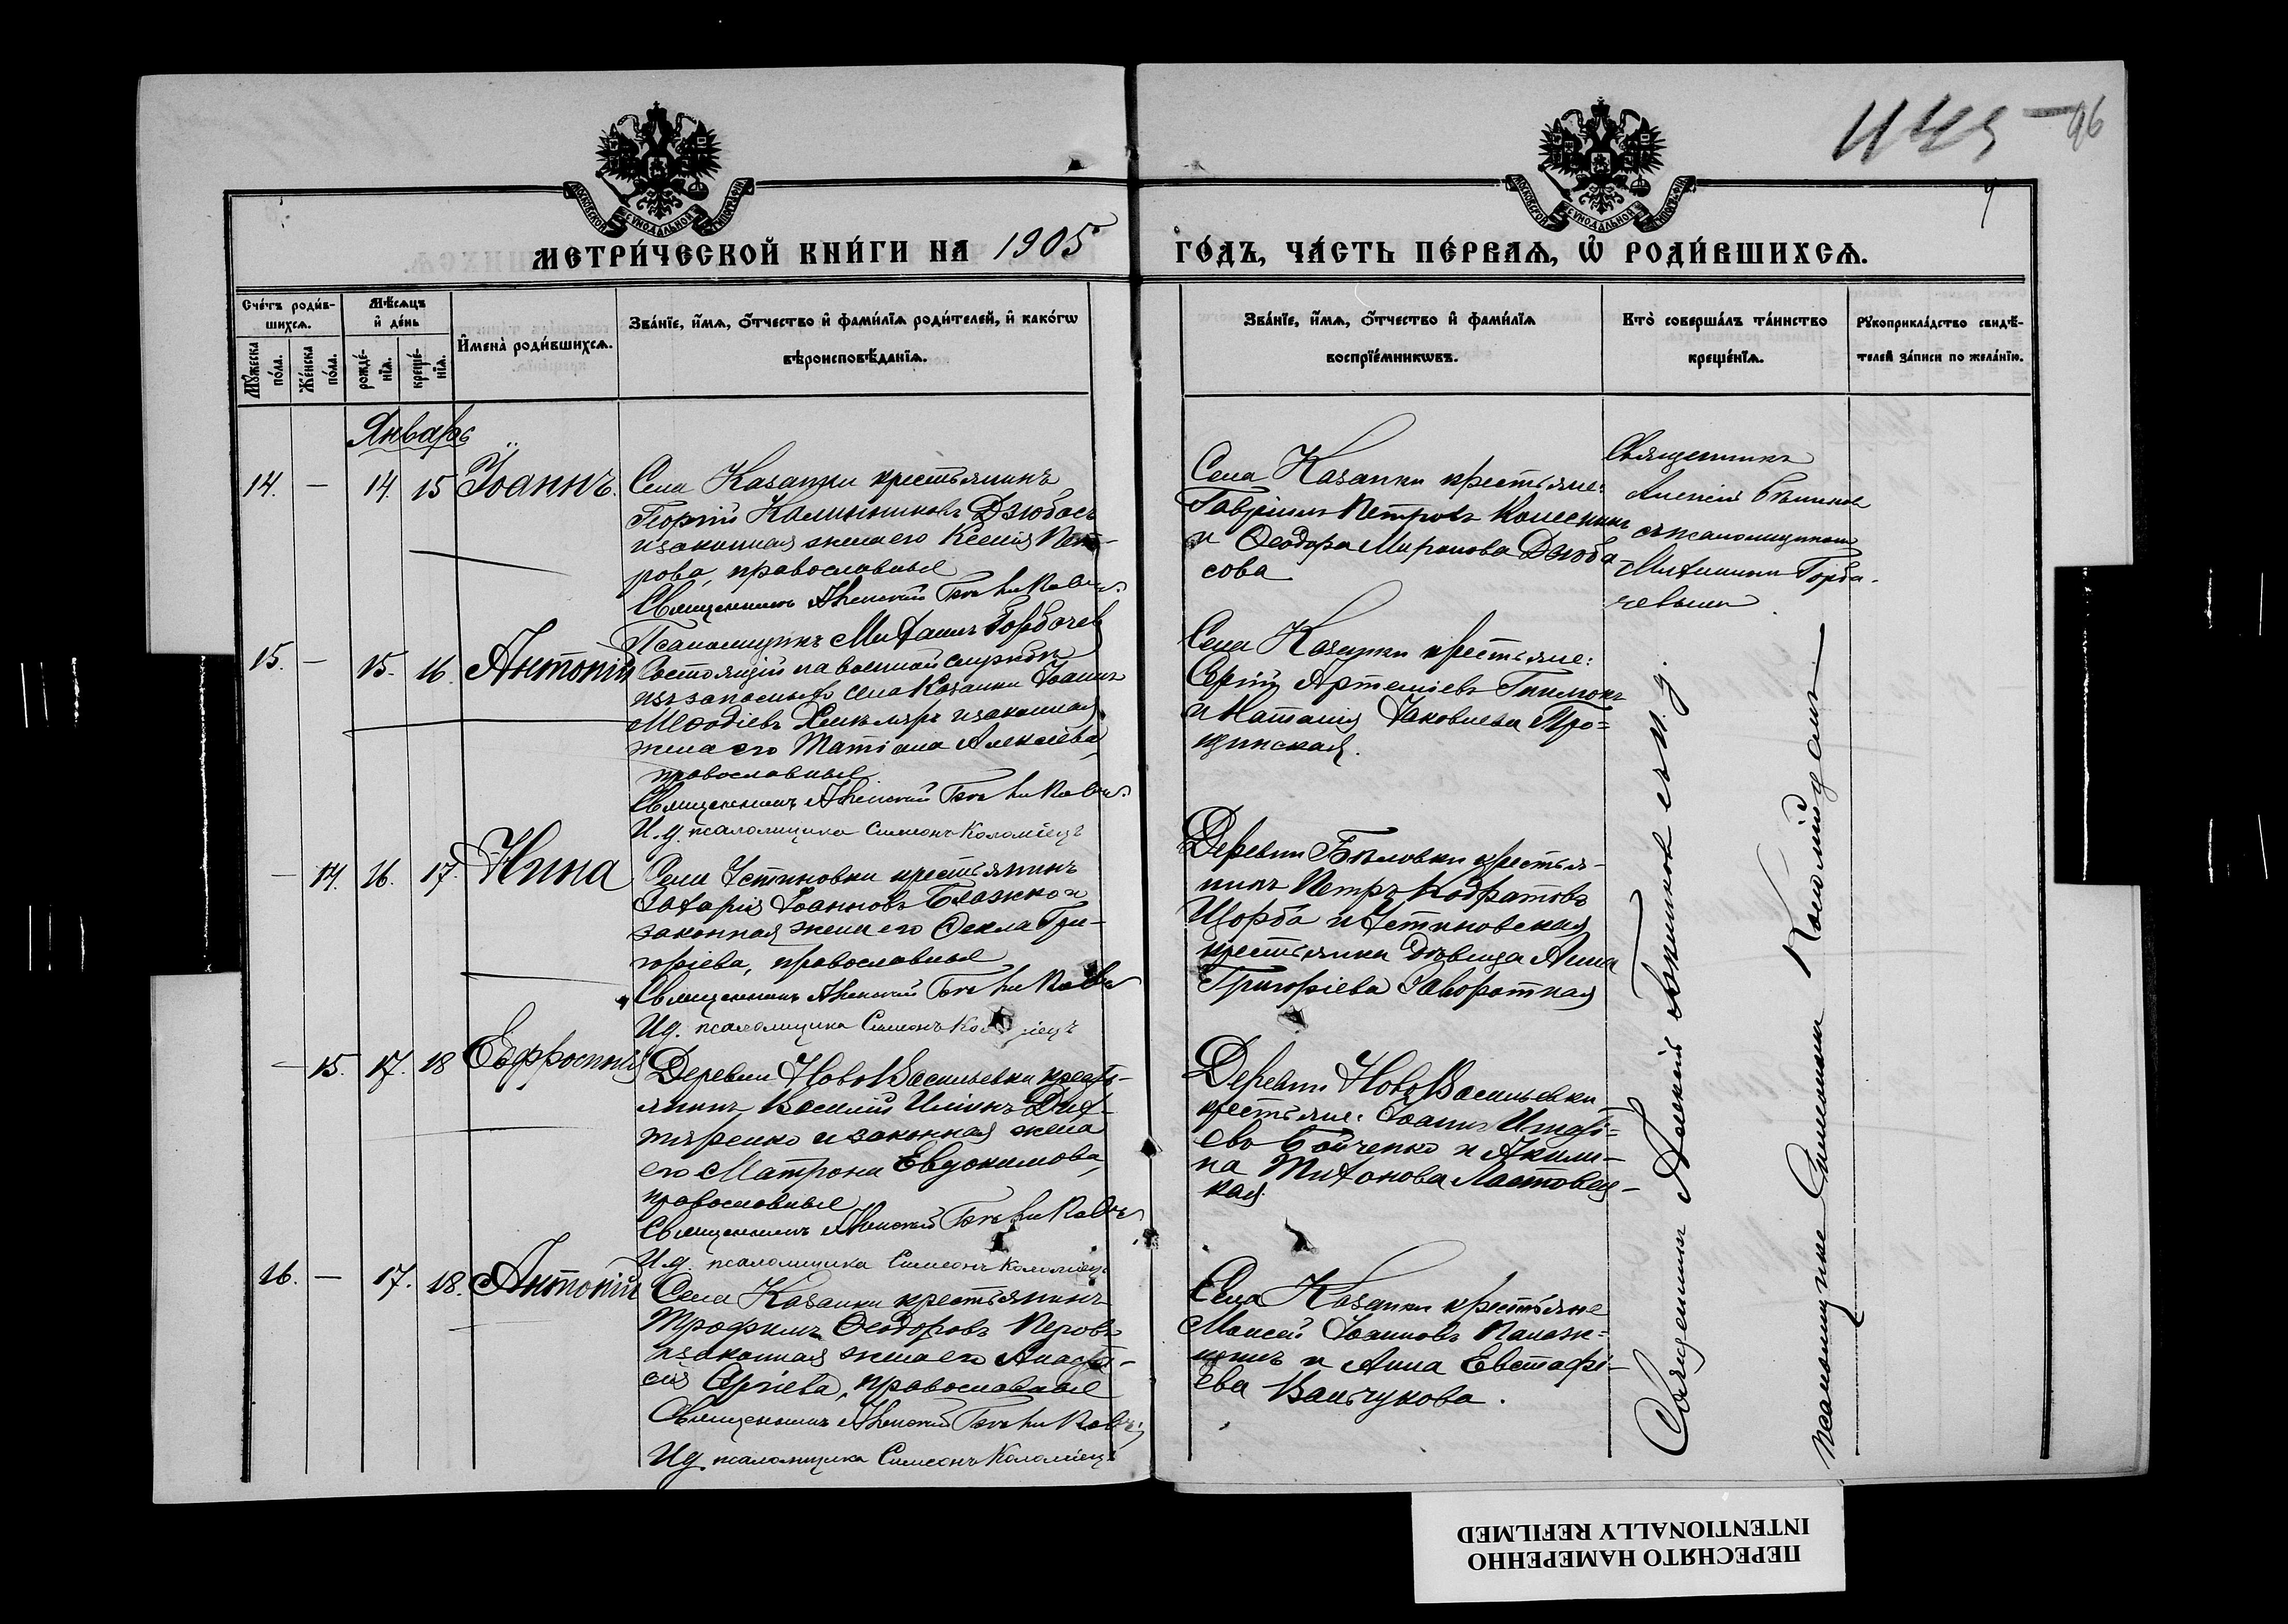 1145 — 96
9
МОСКОВСКОЙ СѴНОДАЛЬНОЙ ТИПОГРАФІИ
МОСКОВСКОЙ СѴНОДАЛЬНОЙ ТИПОГРАФІИ
МЕТРИ́ЧЕСКОЙ КНИ́ГИ НА 1905 ГО́ДЪ, ЧА́СТЬ ПЕ́РВАѦ, Ѡ҆ РОДИ́ВШИХСѦ.
Сче́тъ роди́в-
шихсѧ.
Мѹ́жеска по́ла.
Же́нска по́ла.
Мѣ́сѧцъ
и҆ де́нь
рожде́-
нїѧ.
креще́-
нїѧ.
И҆мена̀ роди́вшихсѧ.
Зва́нїе, и҆́мѧ, ѻ҆́тчество и҆ фами́лїѧ роди́телей, и҆ како́гѡ
вѣроисповѣ́данїѧ.
Зва́нїе, и҆́мѧ, ѻ҆́тчество и҆ фами́лїѧ
воспрїе́мникѡвъ.
Кто̀ соверша́лъ та́инство
креще́нїѧ.
Рѹкоприкла́дство свидѣ́-
телей за́писи по жела́нїю.
Январь
14. — 14. 15 Іоаннъ.
Села Казанки крестьянинъ
Георгій Калинниковъ Дзюбасъ
и законная жена его Ксенія Пет-
рова, православные
Священникъ Алексій
Псаломщикъ Митрофанъ Горбачев
Села Казанки крестьяне:
Гавріилъ Петровъ Колесникъ
и Ѳеодора Миронова Дзюба-
сова
Священникъ
Алексій
съ псаломщикомъ
Горба-
чевымъ
15. — 15. 16. Антоній
Состоящій на военной службѣ
изъ запасныхъ села Казанки Іоаннъ
Меѳодіевъ и законная
жена его Татіана Алексіева,
православные.
Священникъ Алексій
И. д. псаломщика Симеонъ Коломіецъ
Села Казанки крестьяне:
Сергій Артеміевъ
и Наталія Іаковлева Про-
щинская.
— 14. 16. 17. Нина
Села Устиновки крестьянинъ
Захарія Іоанновъ Блажко и
законная жена его Ѳекла Гри-
горіева, православные
Священникъ Алексій
И д. псаломщика Симеонъ Коломіецъ
Деревни Бѣловки крестья-
нинъ Петръ Кодратовъ
Щорба и Устиновская
крестьянка дѣвица Анна
Григоріева Заворотная
— 15. 17. 18 Евфросинія
Деревни НовоВасильевки кресть-
янинъ Василій Дях-
тяренко и законная жена
его Матрона Евдокимова,
православные
Священникъ Алексій
И. д. псаломщика Симеонъ Коломіецъ
Деревни НовоВасильевки
крестьяне: Іоаннъ Игнаті-
евъ Бойченко и Акили-
на Тихонова Ластовец-
кая.
16. — 17. 18. Антоній
Села Казанки крестьянинъ
Трофимъ Ѳеодоровъ Перовъ
и законная жена его Анаста-
сія Сергіева, православные
Священникъ Алексій
И д. псаломщика Симеонъ Коломіецъ
Села Казанки крестьяне
Моисей Іоанновъ Палаж-
ченъ и Анна Евстафі-
ева Вальчукова.
Священникъ Алексій съ и. д.
псаломщика Симеономъ Коломійцемъ
ПЕРЕСНЯТО НАМЕРЕННО
INTENTIONALLY REFILMED